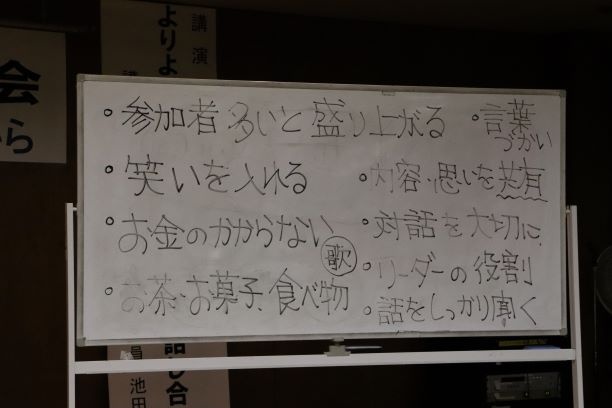 会
から
よりよ
講演
・参加者多いと盛り上がる
・笑いを入れる
・お金のかからない
歌
・お茶・お菓子、食べ物
・言葉
づかい
・内容・思いを共有
・対話を大切に
・リーダーの役割
・話をしっかり聞く
話し合
池田